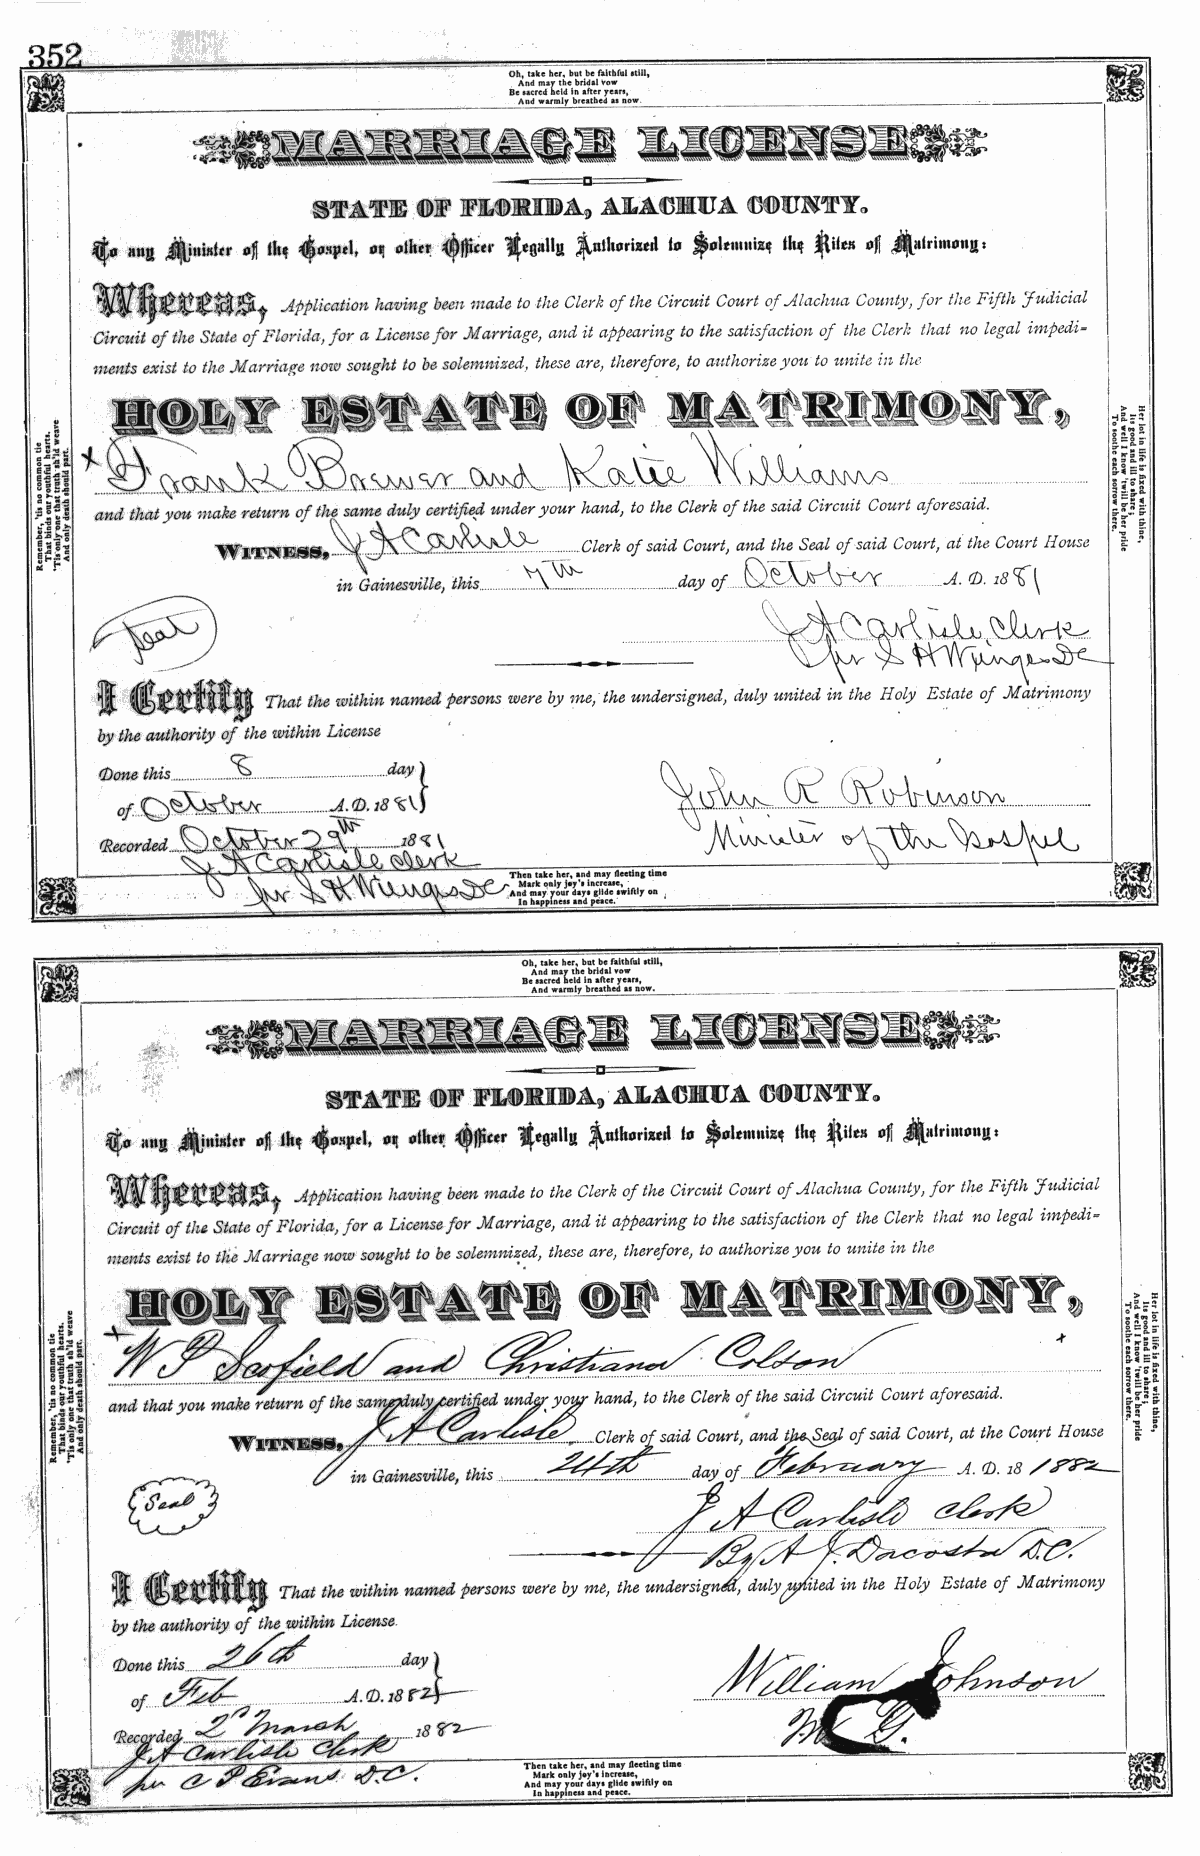 352
Oh, take her, but be faithful still,
And may the bridal vow
Be sacred held in after years,
And warmly breathed as now.
MARRIAGE LICENSE
STATE OF FLORIDA, ALACHUA COUNTY.
To any Minister of the Gospel, or other Officer Legally Authorized to Solemnize the Rites of Matrimony:
Whereas, Application having been made to the Clerk of the Circuit Court of Alachua County, for the Fifth Judicial
Circuit of the State of Florida, for a License for Marriage, and it appearing to the satisfaction of the Clerk that no legal impedi=
ments exist to the Marriage now sought to be solemnized, these are, therefore, to authorize you to unite in the
HOLY ESTATE OF MATRIMONY,
x Frank Brewer and Katie Williams
and that you make return of the same duly certified under your hand, to the Clerk of the said Circuit Court aforesaid.
WITNESS, J A Carlisle Clerk of said Court, and the Seal of said Court, at the Court House
in Gainesville, this 7th day of October A. D. 1881
Seal
J A Carlisle Clerk
pr S H Wienges DC
I Certify That the within named persons were by me, the undersigned, duly united in the Holy Estate of Matrimony
by the authority of the within License
Done this 8 day
of October A. D. 1881
John R Robinson
Minister of the Gospel
Recorded October 29th 1881
J A Carlisle Clerk
pr S H Wienges DC
Then take her, and may fleeting time
Mark only joy's increase,
And may your days glide swiftly on
In happiness and peace.
Remember, 'tis no common tie
That binds our youthful hearts,
'Tis only one that truth sh'ld weave
And only death should part.
Her lot in life is fixed with thine,
Its good and ill to share;
And well I know 'twill be her pride
To soothe each sorrow there.
Oh, take her, but be faithful still,
And may the bridal vow
Be sacred held in after years,
And warmly breathed as now.
MARRIAGE LICENSE
STATE OF FLORIDA, ALACHUA COUNTY.
To any Minister of the Gospel, or other Officer Legally Authorized to Solemnize the Rites of Matrimony:
Whereas, Application having been made to the Clerk of the Circuit Court of Alachua County, for the Fifth Judicial
Circuit of the State of Florida, for a License for Marriage, and it appearing to the satisfaction of the Clerk that no legal impedi=
ments exist to the Marriage now sought to be solemnized, these are, therefore, to authorize you to unite in the
HOLY ESTATE OF MATRIMONY,
x W P Scofield and Christiana Colson x
and that you make return of the same duly certified under your hand, to the Clerk of the said Circuit Court aforesaid.
WITNESS, J A Carlisle Clerk of said Court, and the Seal of said Court, at the Court House
in Gainesville, this 24th day of February A. D. 18 1882
Seal
J A Carlisle Clerk
By A J. Dacosta D.C.
I Certify That the within named persons were by me, the undersigned, duly united in the Holy Estate of Matrimony
by the authority of the within License
Done this 26th day
of Feb A. D. 1882
William Johnson
M G.
Recorded 2d March 1882
J A Carlisle Clerk
per C P Evans D.C.
Then take her, and may fleeting time
Mark only joy's increase,
And may your days glide swiftly on
In happiness and peace.
Remember, 'tis no common tie
That binds our youthful hearts,
'Tis only one that truth sh'ld weave
And only death should part.
Her lot in life is fixed with thine,
Its good and ill to share;
And well I know 'twill be her pride
To soothe each sorrow there.